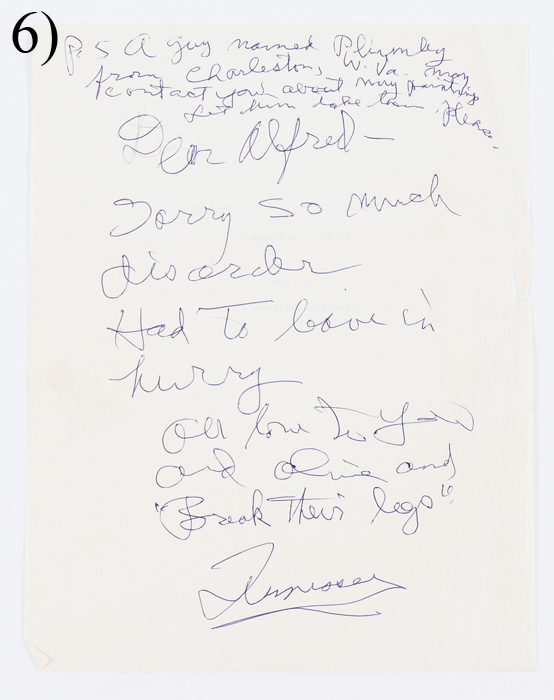 6)
P.S A guy named Plumley
from Charleston, W. Va. may
contact you about my painting
Let him take them. Please.
Dear Alfred —
Sorry so much
disorder
Had To leave in
hurry
All love to You
and Olivia and
"Break Their legs"
Tennessee